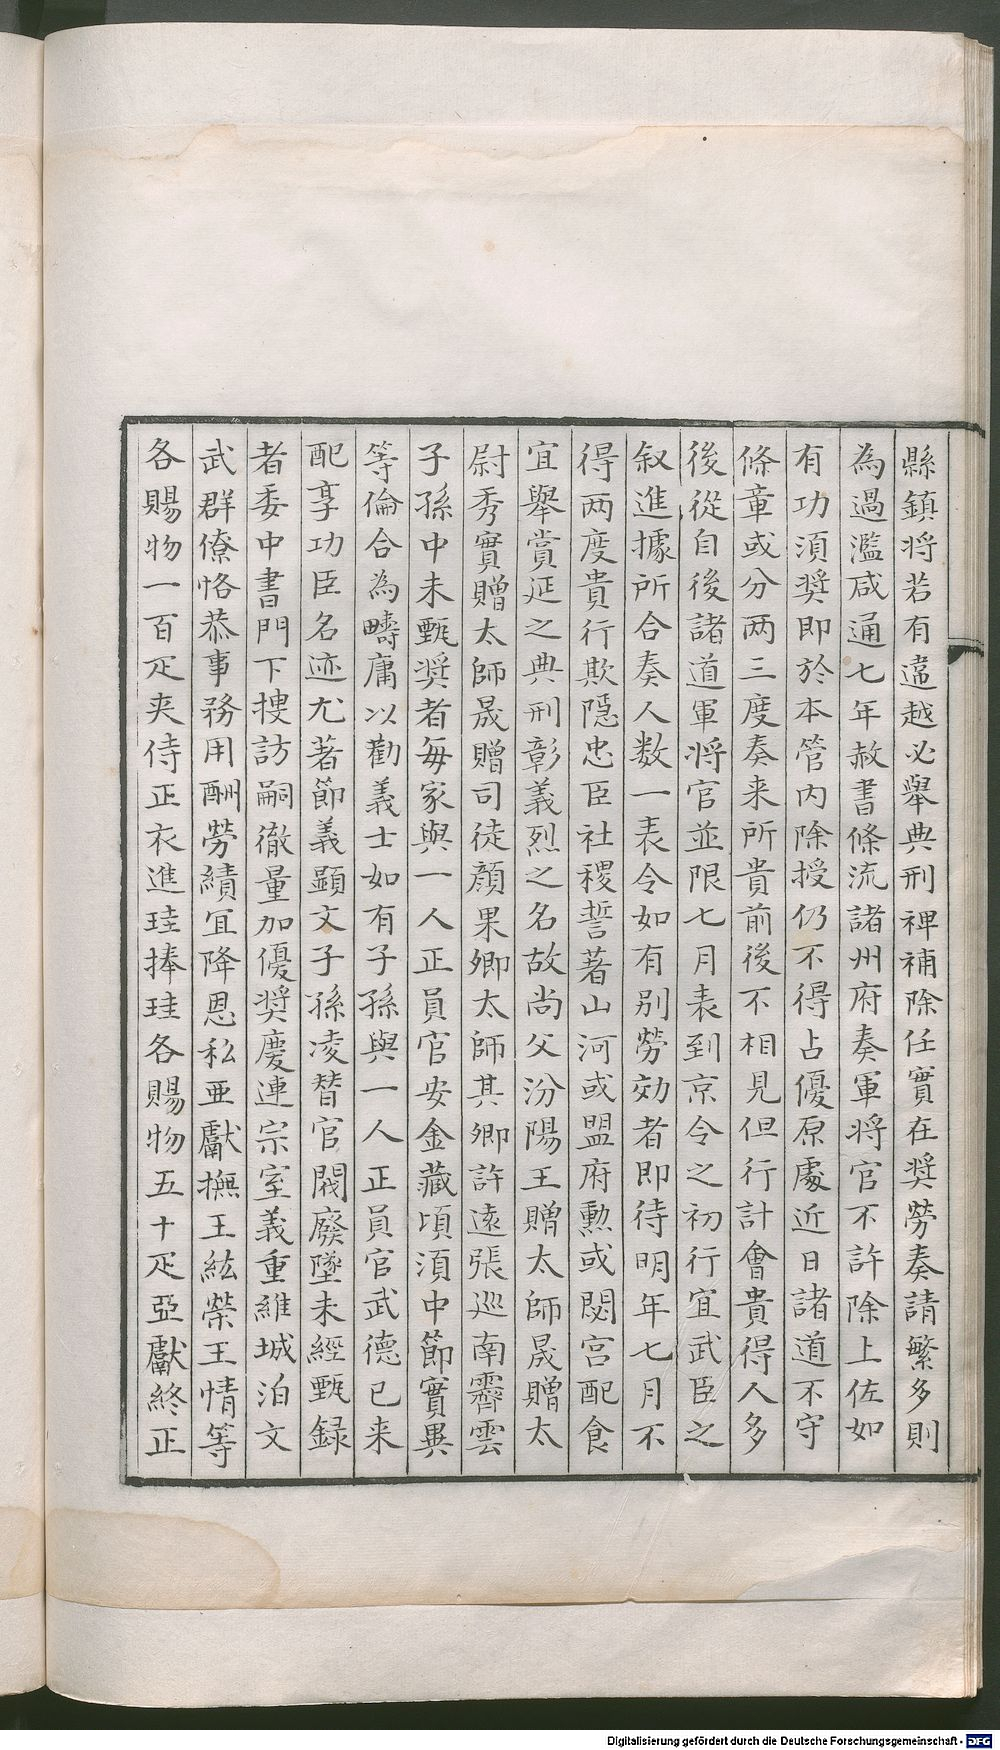 縣鎮将若有違越必舉典刑禆補除任實在奬勞奏請繁多則
為過濫咸通七年赦書條流諸州府奏軍将官不許除上佐如
有功須奬即於本管内除授仍不得占優原䖏近日諸道不守
條章或分两三度奏来所貴前後不相見但行計會貴得人多
後從自後諸道軍将官並限七月表到京令之初行宜武臣之
叙進據所合奏人数一表令如有别勞効者即待明年七月不
得两度貴行欺隠忠臣社稷誓著山河或盟府勲或閟宫配食
宜舉賞延之典刑彰義烈之名故尚父汾陽王贈太師晟贈太
尉秀實贈太師晟贈司徒顔果卿太師其卿許逺張巡南霽雲
子孫中未甄奬者每家與一人正員官安金藏頃湏中節實異
等倫合為疇庸以勸義士如有子孫與一人正員官武德已来
配享功臣名迹尤著節義顯文子孫凌替官閥廢墜未經甄録
者委中書門下搜訪嗣徹量加優奬慶連宗室義重維城洎文
武群僚恪恭事務用酬勞績宜降恩私亜獻撫王紘榮王情等
各賜物一百疋夾侍正衣進珪捧珪各賜物五十疋亞獻終正
Digitalisierung gefördert durch die Deutsche Forschungsgemeinschaft - DFG